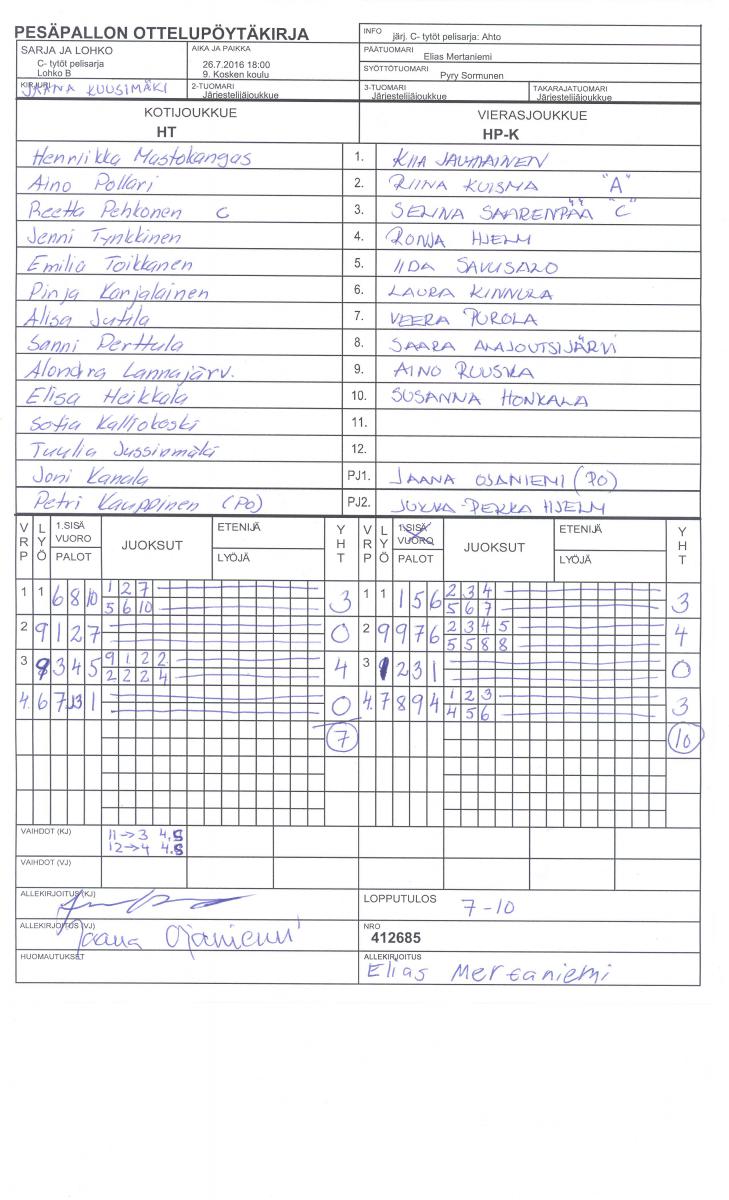 PESÄPALLON OTTELUPÖYTÄKIRJA
INFO järj. C- tytöt pelisarja: Ahto
SARJA JA LOHKO
C- tytöt pelisarja
Lohko B
AIKA JA PAIKKA
26.7.2016 18:00
9. Kosken koulu
PÄÄTUOMARI
Elias Mertaniemi
SYÖTTÖTUOMARI
Pyry Sormunen
KIRJURI JAANA KUUSIMÄKI
2-TUOMARI
Järjestelijäjoukkue
3-TUOMARI
Järjestelijäjoukkue
TAKARAJATUOMARI
Järjestelijäjoukkue
KOTIJOUKKUE VIERASJOUKKUE
HT HP-K
Henriikka Mastokangas 1. KIIA JAUHIAINEN
Aino Pollari 2. RIINA KUISMA "A"
Reetta Pehkonen C 3. SELINA SAARENPÄÄ "C"
Jenni Tynkkinen 4. RONJA HJELM
Emilia Toikkanen 5. IIDA SAVUSALO
Pinja Karjalainen 6. LAURA KINNULA
Alisa Jutila 7. VEERA PUROLA
Sanni Perttula 8. SAARA ALAJOUTSIJÄRVI
Alondra Lannajärv. 9. AINO RUUSKA
Elisa Heikkala 10. SUSANNA HONKALA
Sofia Kalliokoski 11.
Tuulia Jussinmäki 12.
Joni Kanala PJ1. JAANA OJANIEMI (PO)
Petri Kauppinen (PO) PJ2. JUKKA-PEKKA HJELM
VRP LYÖ 1.SISÄ VUORO PALOT JUOKSUT ETENIJÄ LYÖJÄ YHT VRP LYÖ 1.SISÄ VUORO PALOT JUOKSUT ETENIJÄ LYÖJÄ YHT
1 1 6 8 10 1 2 7 3 1 1 1 5 6 2 3 4 3
5 6 10 5 6 7
2 9 1 2 7 0 2 9 9 7 6 2 3 4 5 4
5 5 8 8
3 8 3 4 5 9 1 2 2 4 3 1 2 3 1 0
2 2 2 4
4. 6 7 1 0 4. 7 8 9 4 1 2 3 3
4 5 6
7 10
VAIHDOT (KJ) 11→3 4.S
12→4 4.S
VAIHDOT (VJ)
ALLEKIRJOITUS (KJ)
LOPPUTULOS 7-10
ALLEKIRJOITUS (VJ) Jaana Ojaniemi
NRO
412685
HUOMAUTUKSET
ALLEKIRJOITUS
Elias Mertaniemi